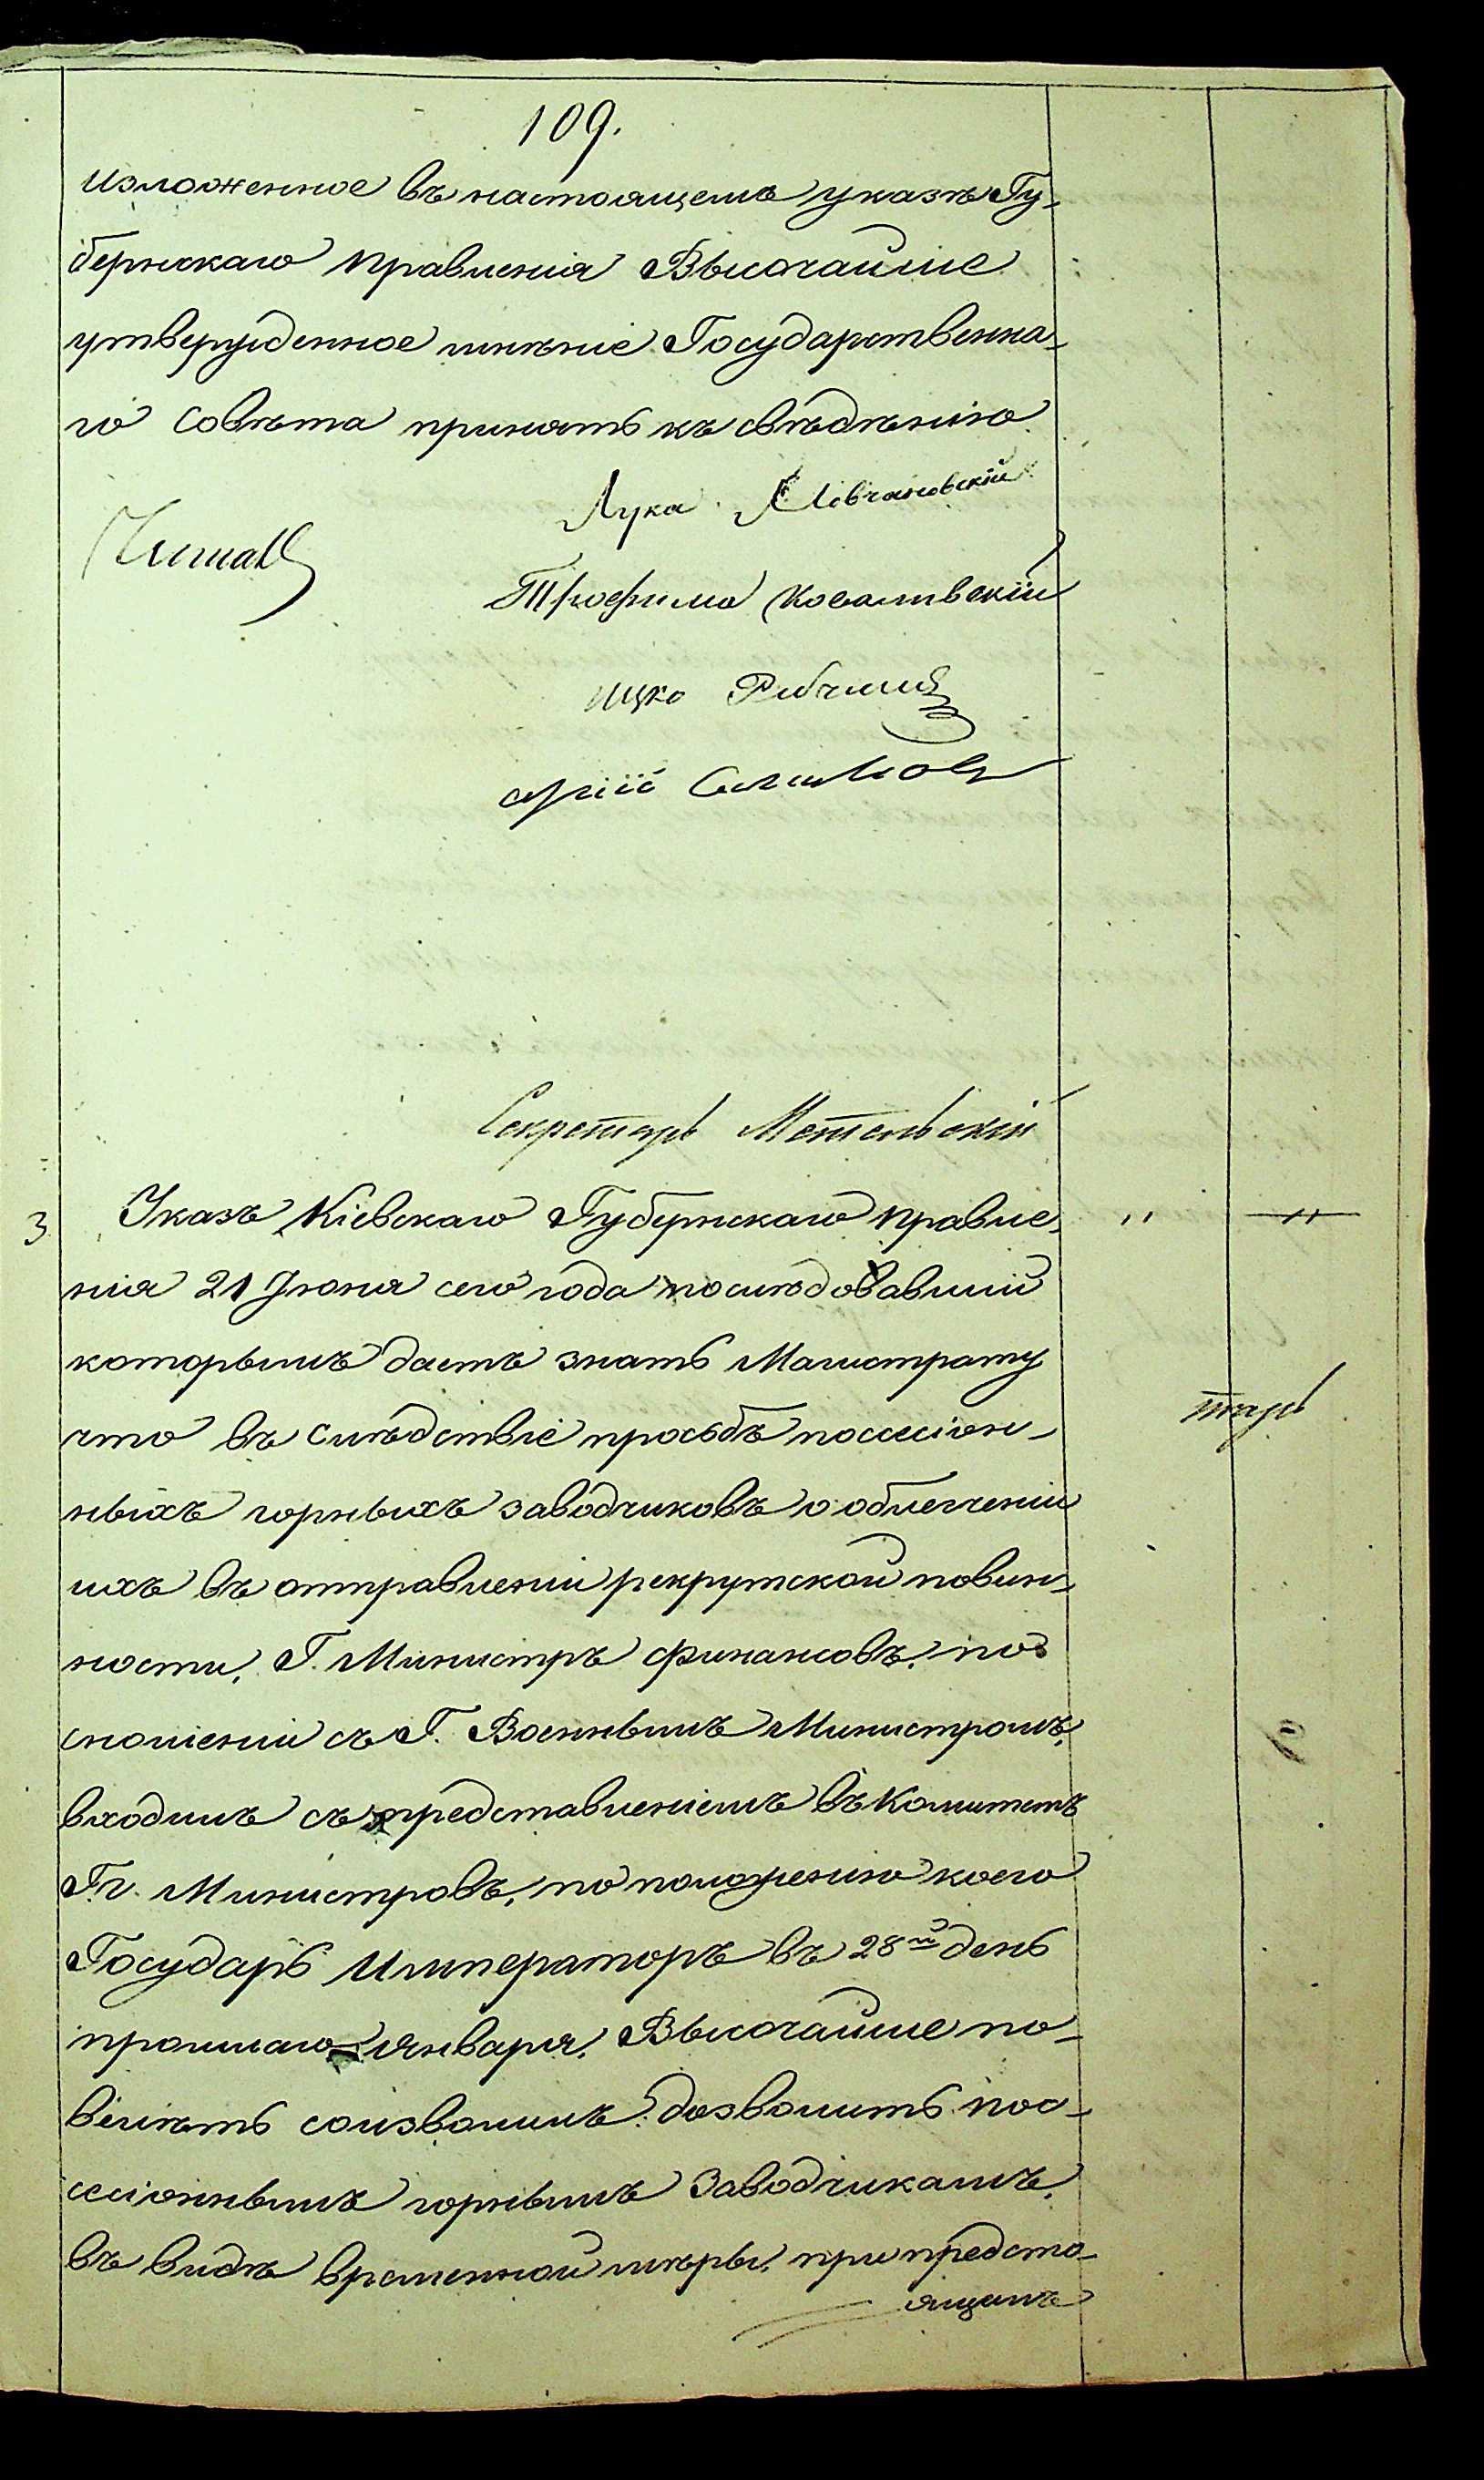 109.
изложенное въ настоящемъ указѣ Гу-
бернскаго правленія Высочайше
утвержденное мнѣніе Государственна-
го Совѣта принять къ свѣдѣнію
Лука
Читалъ
Трофимъ Коваливскій
ицко
Секретарь Метельскій
3 Указъ Кіевскаго Губернскаго правле- " "
нія 21 Іюня сего года послѣдовавшій
которымъ даетъ знать Магистрату
тарь
что въ слѣдствіе просьбъ поссесіон-
ныхъ горныхъ заводчиковъ о облегченіи
ихъ въ отправленіи рекрутской повин-
ности, Г. Министръ финансовъ, по
сношеніи съ Г. Военнымъ Министромъ,
входилъ съ представленіемъ въ Комитетъ
Г.г. Министровъ, по положенію коего
Государь Императоръ въ 28й день
прошлаго Января, Высочайше по-
велѣть соизволилъ: дозволить пос-
сесіоннымъ горнымъ Заводчикамъ,
въ видѣ временной мѣры, при предсто-
ящемъ